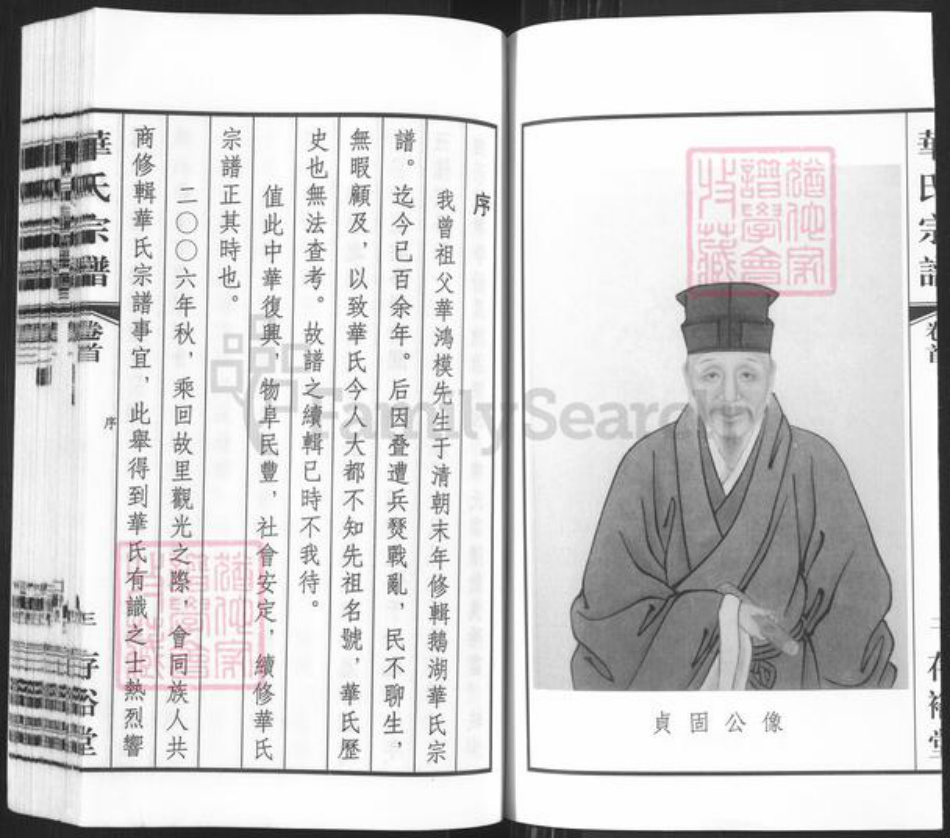 華氏宗譜
卷首
存裕堂
貞固公像
序
我曾祖父華鴻模先生于清朝末年修輯鵝湖華氏宗
譜。迄今已百余年。后因叠遭兵燹戰亂，民不聊生，
無暇顧及，以致華氏今人大都不知先祖名號，華氏歷
史也無法查考。故譜之續輯已時不我待。
值此中華復興，物阜民豐，社會安定，續修華氏
宗譜正其時也。
二〇〇六年秋，乘回故里觀光之際，會同族人共
商修輯華氏宗譜事宜，此舉得到華氏有識之士熱烈響
華氏宗譜
卷首
序
三
存裕堂
FamilySearch